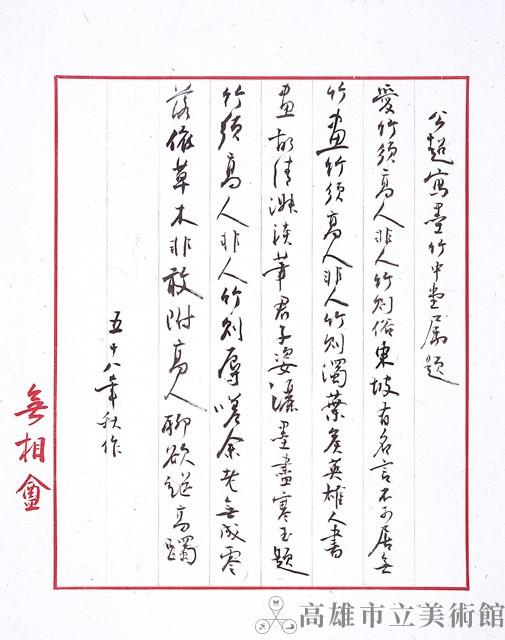 公超寫墨竹中堂屬題
愛竹須高人非人竹則俗東坡有名言不可居無
竹畫竹須高人非人竹則濁葉矦英雄人書
畫故清淑淡華君子姿灑墨盡寒玉題
竹須高人非人竹則辱嗟余老無成零
落依草木非敢附高人聊欲從高躅
五十八年秋作
無相盦
高雄市立美術館